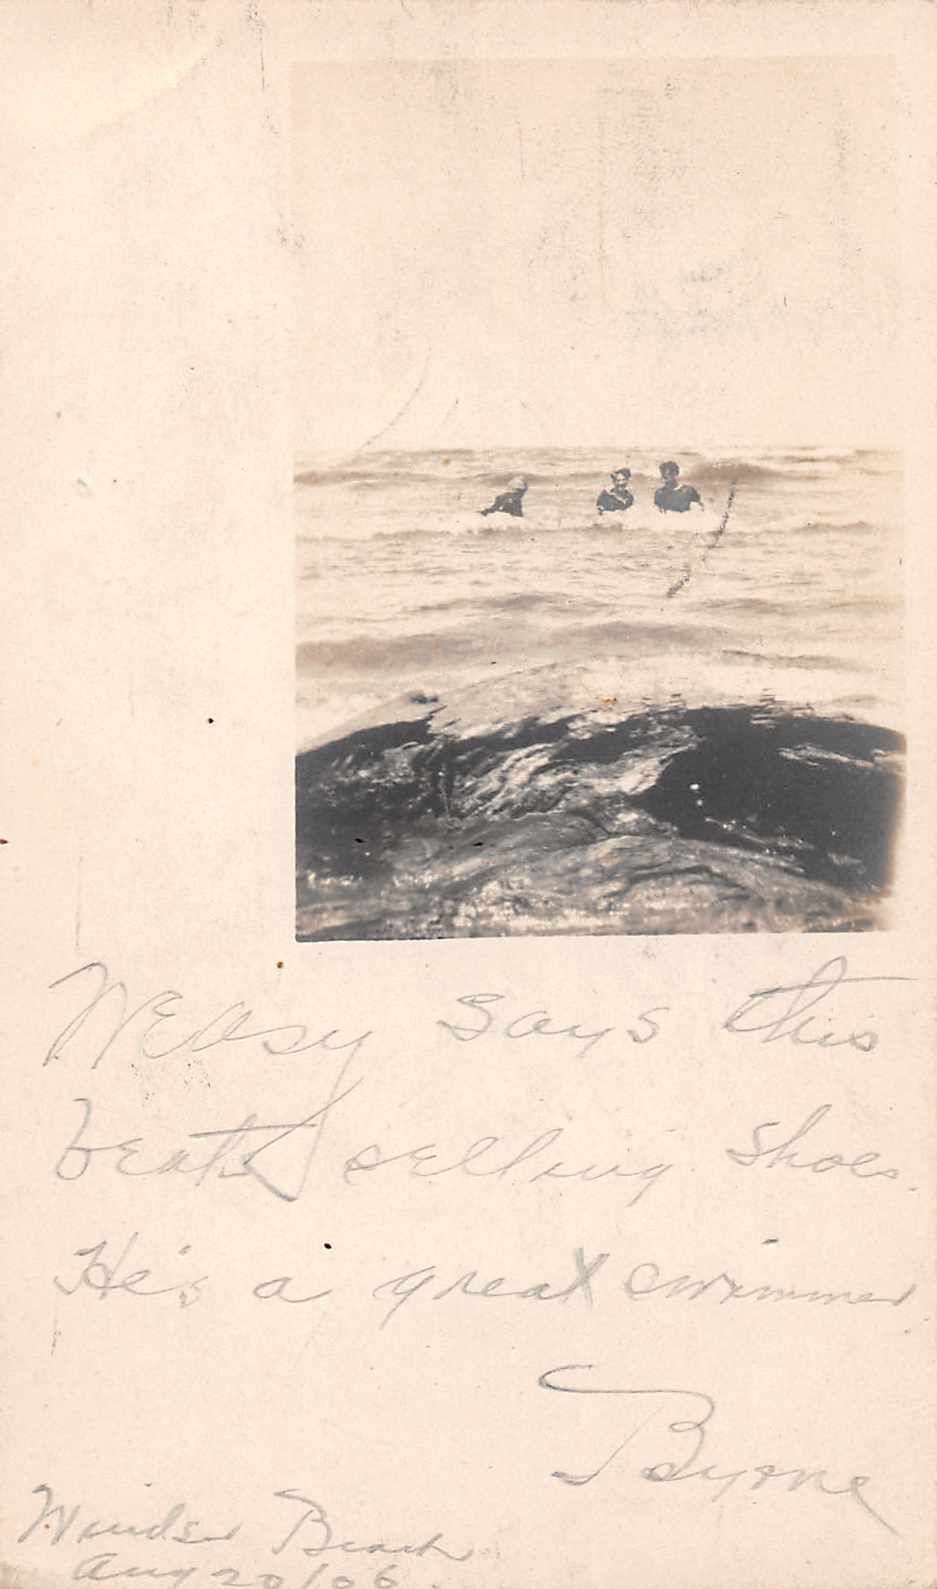 Weasy says this
beats selling shoes.
He's a great swimmer
Byrne
Beach
Aug 20/06.